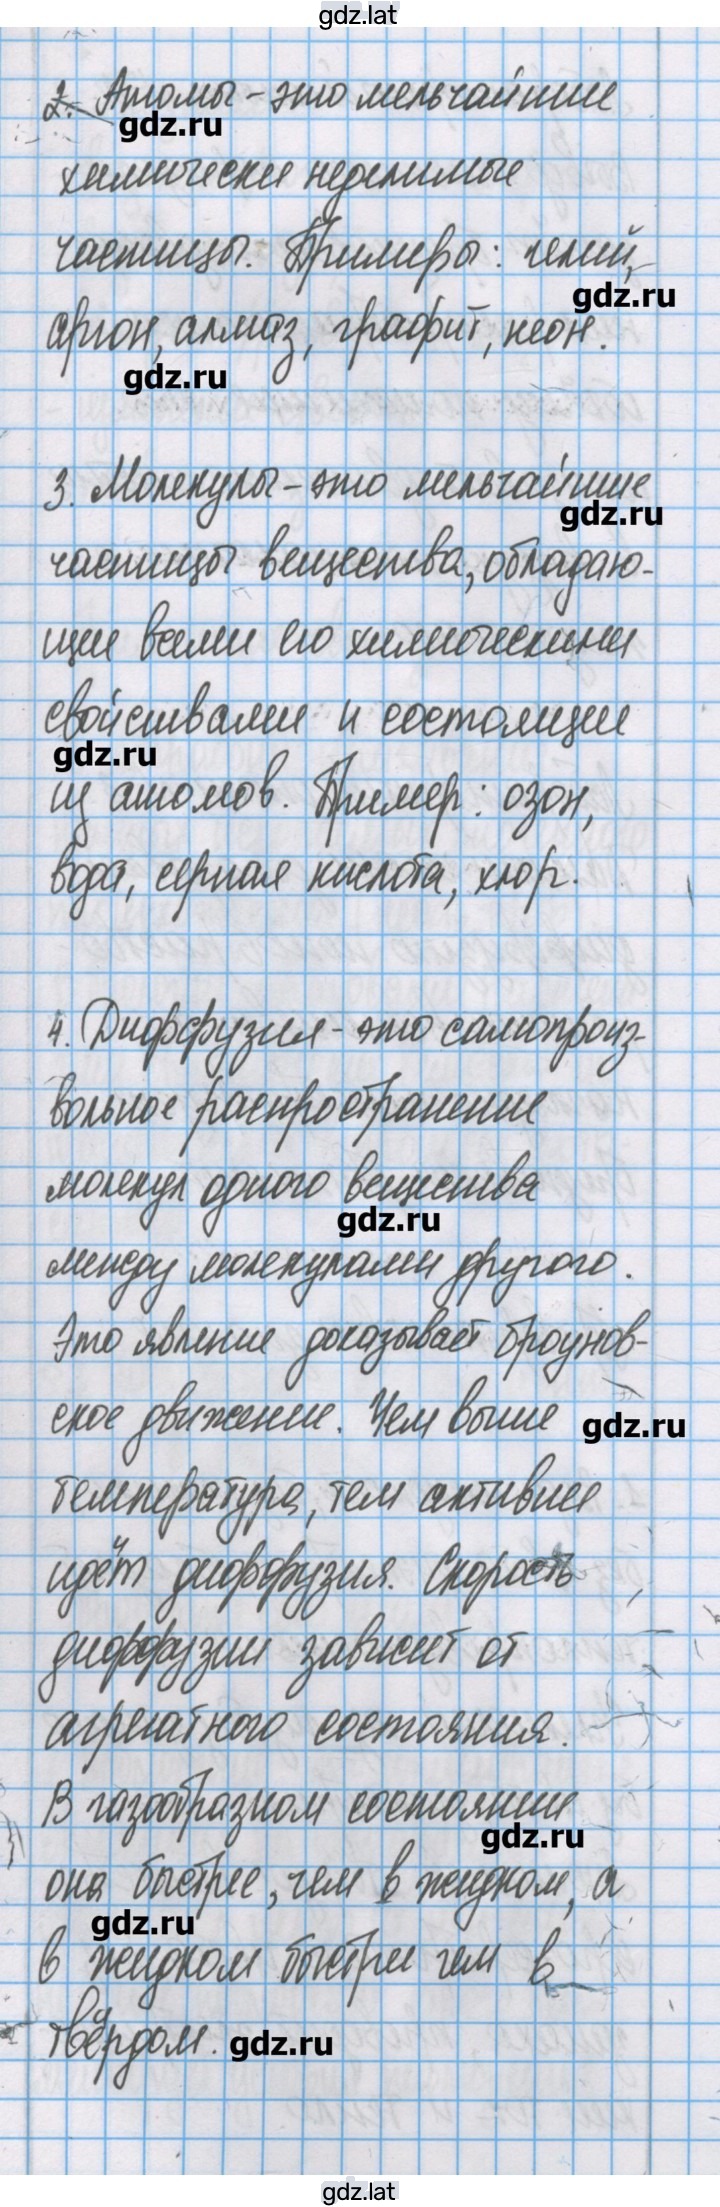 gdz.lat
2. Атомы - это мельчайшие
gdz.ru
химически неделимые
частицы. Примеры: гелий,
gdz.ru
аргон, алмаз, графит, неон.
gdz.ru
3. Молекулы - это мельчайшие
gdz.ru
частицы вещества, обладаю-
щие всеми его химическими
свойствами и состоящие
gdz.ru
из атомов. Пример: озон,
вода, серная кислота, хлор.
4. Диффузия - это самопроиз-
вольное распространение
молекул одного вещества
gdz.ru
между молекулами другого.
Это явление доказывает броунов-
ское движение. Чем выше
gdz.ru
температура, тем активнее
идёт диффузия. Скорость
диффузии зависит от
агрегатного состояния.
В газообразном состоянии
gdz.ru
она быстрее, чем в жидком, а
gdz.ru
в жидком быстрее чем в
твёрдом.
gdz.ru
gdz.lat